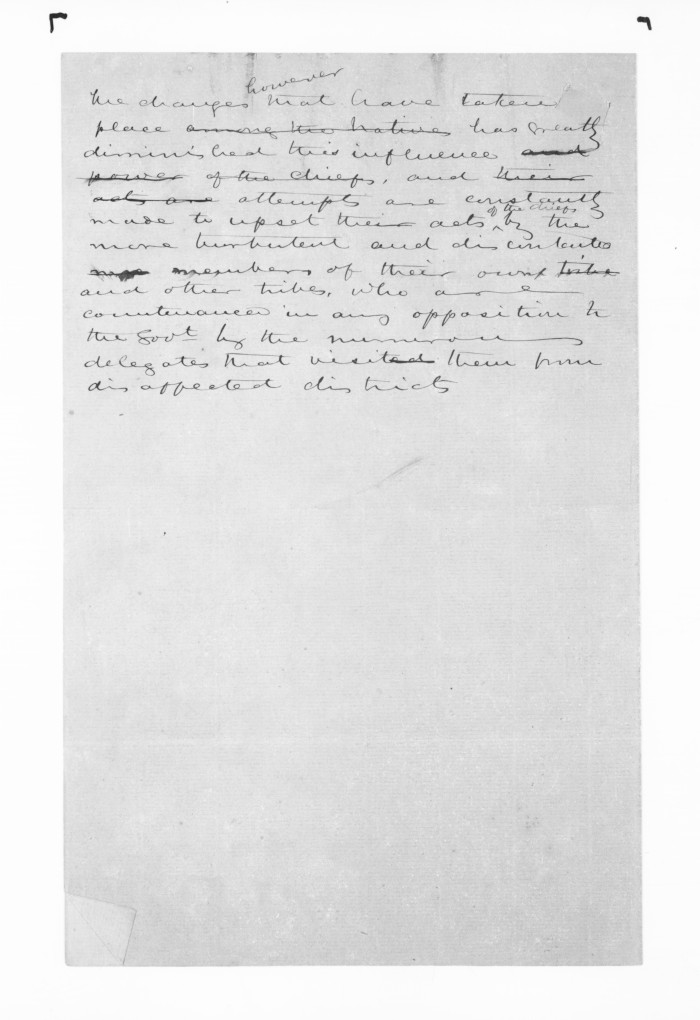 however
the changes that have taken
place among the natives has greatly
diminished this influence and
power of the chiefs, and their
acts are attempts are constantly
of the chiefs
made to upset their acts by the
more turbulent and discontented
members of their own tribe
and other tribes, who are
countenanced in any opposition to
the Govt by the numerous
delegates that visited them from
disaffected districts